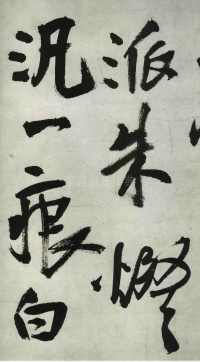 派朱燈
汎一痕白